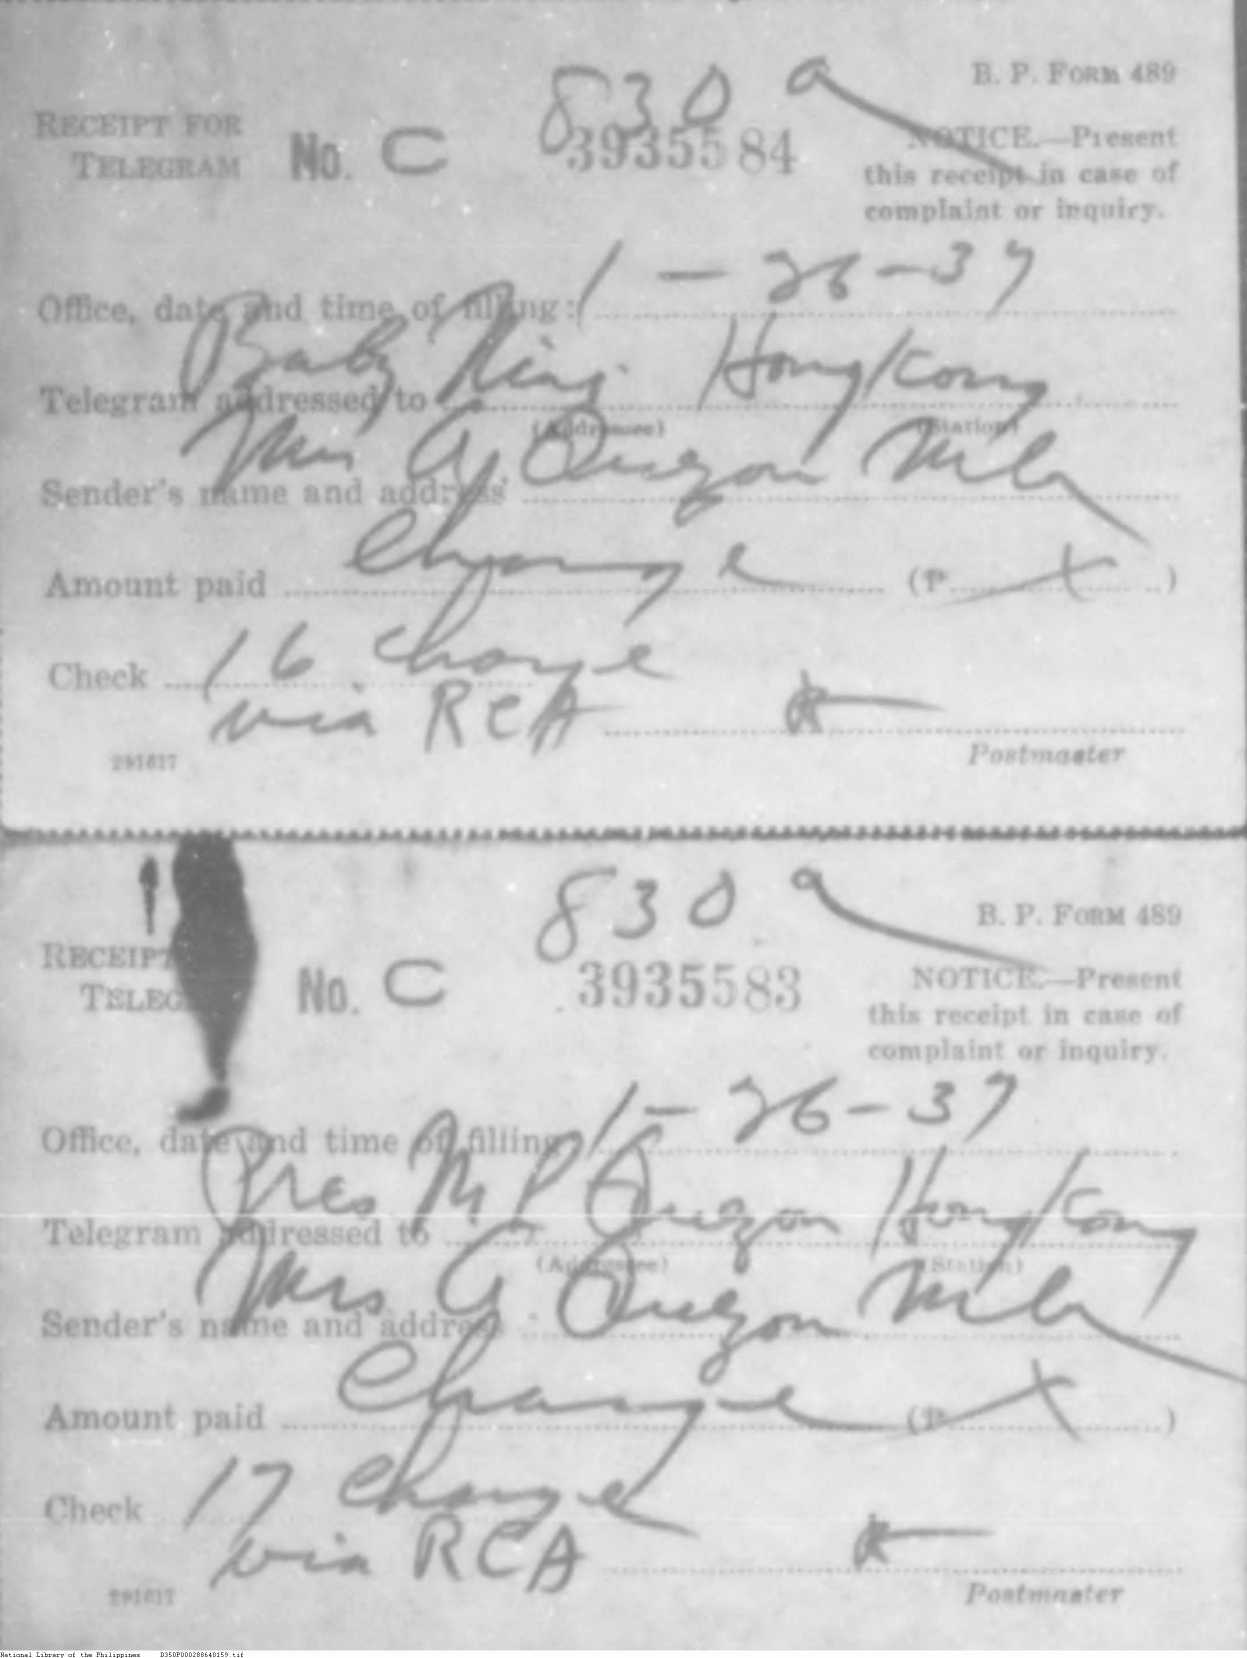 830 a
B. P. FORM 489
RECEIPT FOR
TELEGRAM
No. C 3935584
NOTICE.—Present
this receipt in case of
complaint or inquiry.
Office, date and time of filling: 1-26-37
Telegram addressed to Baby Nini Hongkong
(Addressee) (Station)
Sender's name and address Mrs A Quezon Mla
Amount paid Charge (P x )
Check 16 charge
via RCA
Postmaster
291617
830 a
B. P. FORM 489
RECEIPT
TELEG
No. C 3935583
NOTICE.—Present
this receipt in case of
complaint or inquiry.
Office, date and time of filling 1-26-37
Telegram addressed to Pres M. P Quezon Hongkong
(Addressee) (Station)
Sender's name and address Mrs A Quezon Mla
Amount paid Charge (P x )
Check 17 charge
via RCA
Postmaster
291617
National Library of the Philippines D350P000288640159.tif